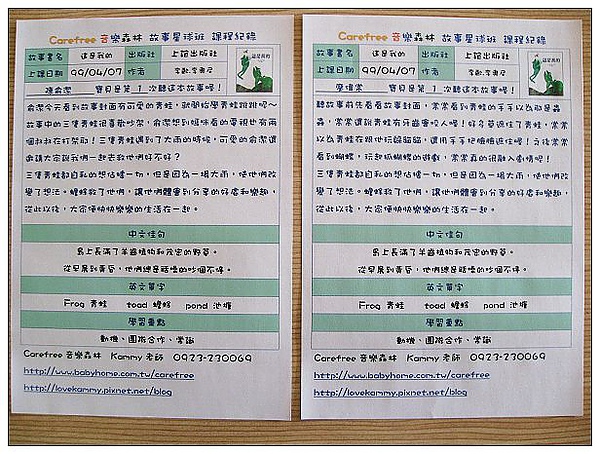 Carefree 音樂森林 故事星球班 課程紀錄
故事書名 這是我的 出版社 上誼出版社
上課日期 99/04/07 作者 李歐.李奧尼
陳俞潔 寶貝是第 1 次聽這本故事喔!
俞潔今天看到故事封面有可愛的青蛙,就開始學青蛙跳跳呢~
故事中的三隻青蛙很喜歡吵架,俞潔想到媽咪看的電視也有兩
個叔叔在打架耶!三隻青蛙遇到了大雨的時候,可愛的俞潔還
邀請大家說我們一起去救他們好不好?
三隻青蛙都自私的想佔據一切,但是因為一場大雨,使他們改
變了想法。蟾蜍救了他們,讓他們體會到分享的好處和樂趣,
從此以後,大家便快快樂樂的生活在一起。
中文佳句
島上長滿了羊齒植物和茂密的野草。
從早晨到黃昏,他們總是聒噪的吵個不停。
英文單字
Frog 青蛙 toad 蟾蜍 pond 池塘
學習重點
動機、團隊合作、常識
Carefree 音樂森林 Kammy 老師 0923-230069
http://www.babyhome.com.tw/carefree
http://lovekammy.pixnet.net/blog
Carefree 音樂森林 故事星球班 課程紀錄
故事書名 這是我的 出版社 上誼出版社
上課日期 99/04/07 作者 李歐.李奧尼
寶貝是第 1 次聽這本故事喔!
聽故事前先看看故事封面,常常看到青蛙的手手以為那是蟲
蟲,常常還說青蛙有牙齒會咬人喔!好多草遮住了青蛙,常常
以為青蛙在跟他玩躲貓貓,還用手手把臉臉遮住喔!之後常常
看到蝴蝶,玩起抓蝴蝶的遊戲,常常真的很融入劇情呢!
三隻青蛙都自私的想佔據一切,但是因為一場大雨,使他們改
變了想法。蟾蜍救了他們,讓他們體會到分享的好處和樂趣,
從此以後,大家便快快樂樂的生活在一起。
中文佳句
島上長滿了羊齒植物和茂密的野草。
從早晨到黃昏,他們總是聒噪的吵個不停。
英文單字
Frog 青蛙 toad 蟾蜍 pond 池塘
學習重點
動機、團隊合作、常識
Carefree 音樂森林 Kammy 老師 0923-230069
http://www.babyhome.com.tw/carefree
http://lovekammy.pixnet.net/blog